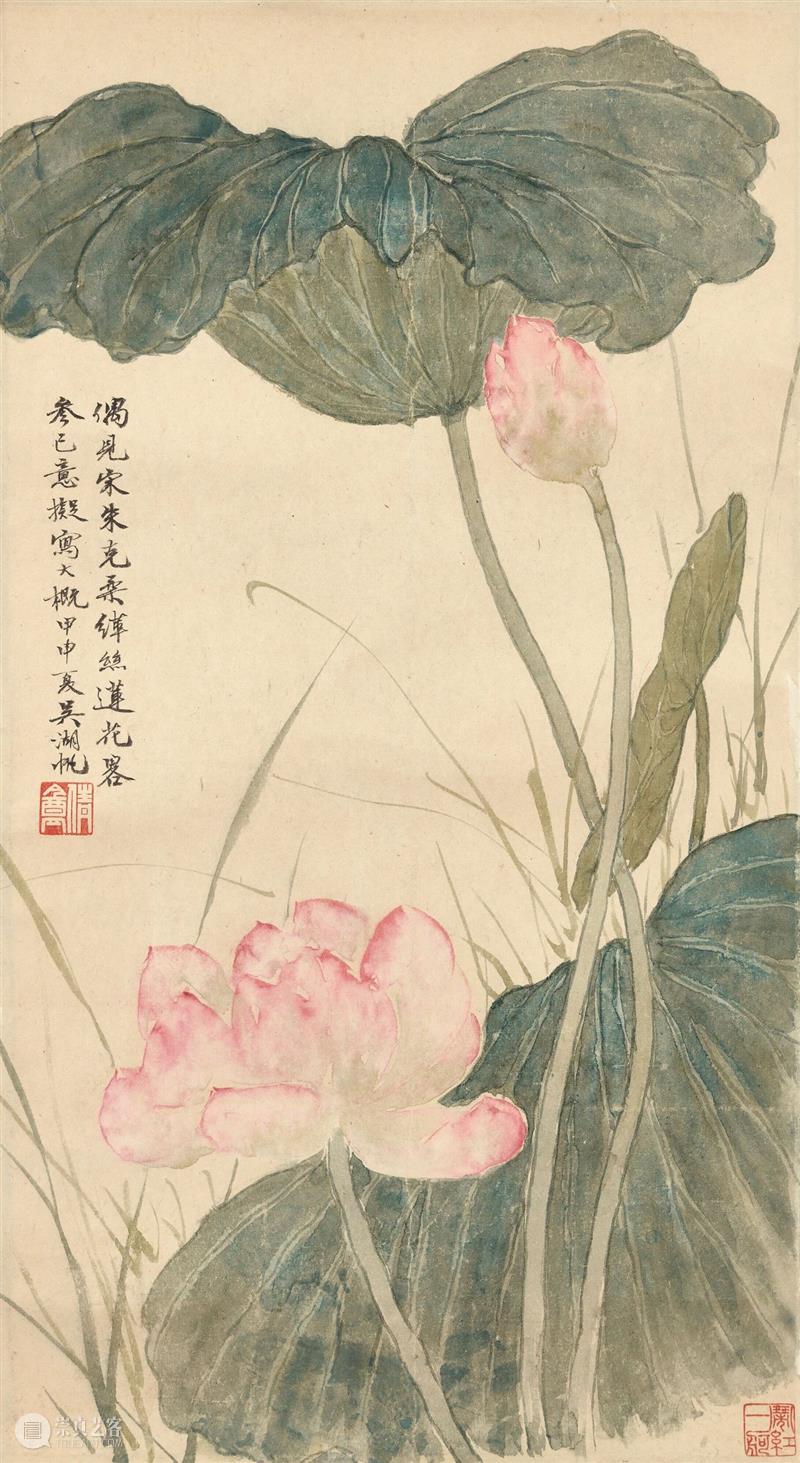 偶見宋朱克柔緙絲蓮花畧
參己意擬寫大概甲申夏吳湖帆
倩盦
崇真艺客